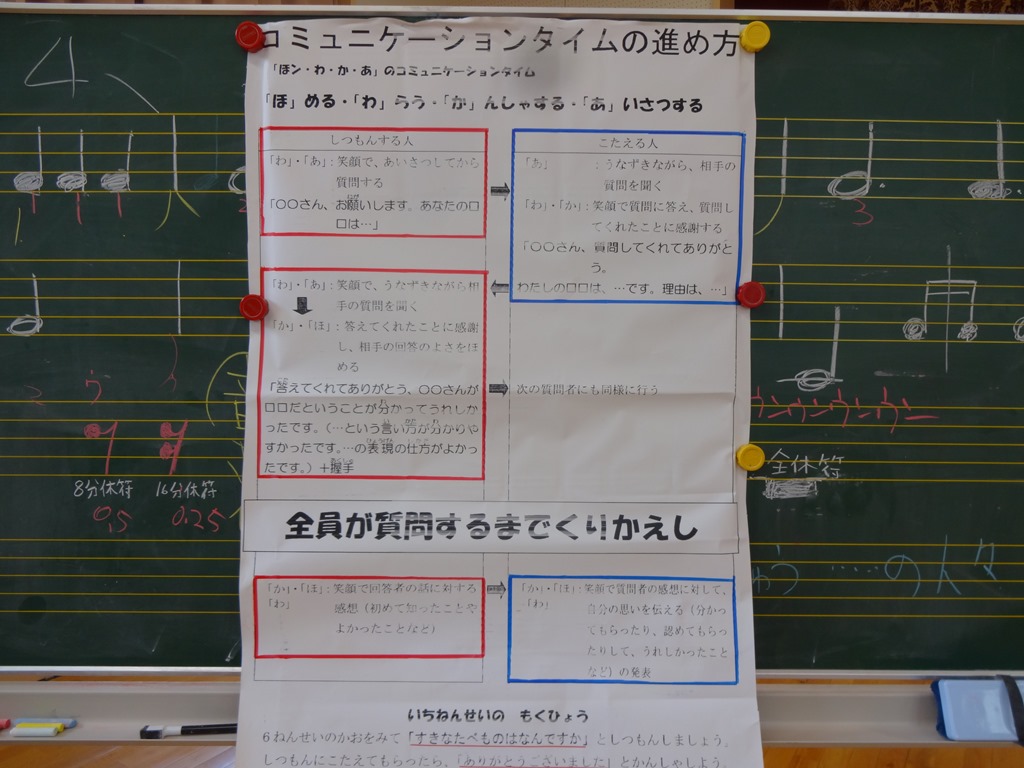 コミュニケーションタイムの進め方
「ほン・わ・か・あ」のコミュニケーションタイム
「ほ」める・「わ」らう・「か」んしゃする・「あ」いさつする
しつもんする人
「わ」・「あ」：笑顔で、あいさつしてから
質問する
「〇〇さん、お願いします。あなたの口
口は…」
こたえる人
「あ」　　：うなずきながら、相手の
質問を聞く
「わ」・「か」：笑顔で質問に答え、質問し
てくれたことに感謝する
「〇〇さん、質問してくれてありがと
う。
わたしの口口は、…です。理由は、…」
「わ」・「あ」：笑顔で、うなずきながら相
手の質問を聞く
「か」・「ほ」：答えてくれたことに感謝
し、相手の回答のよさをほ
める
「答えてくれてありがとう、〇〇さんが
口口だということが分かってうれしか
ったです。（…という言い方が分かりや
すかったです。…の表現の仕方がよかっ
たです。）＋握手
次の質問者にも同様に行う
全員が質問するまでくりかえし
「か」・「ほ」：笑顔で回答者の話に対する
「わ」　感想（初めて知ったことや
よかったことなど）
「か」・「ほ」：笑顔で質問者の感想に対して、
「わ」　自分の思いを伝える（分かっ
てもらったり、認めてもらっ
たりして、うれしかったこと
など）の発表
いちねんせいの　もくひょう
6ねんせいのかおをみて「すきなたべものはなんですか」としつもんしましょう。
しつもんにこたえてもらったら、「ありがとうございました」とかんしゃしよう。
4、
1 1 1
8分休符
16分休符
0.5
0.25
3
ウンウンウンウン
全休符
……の人々